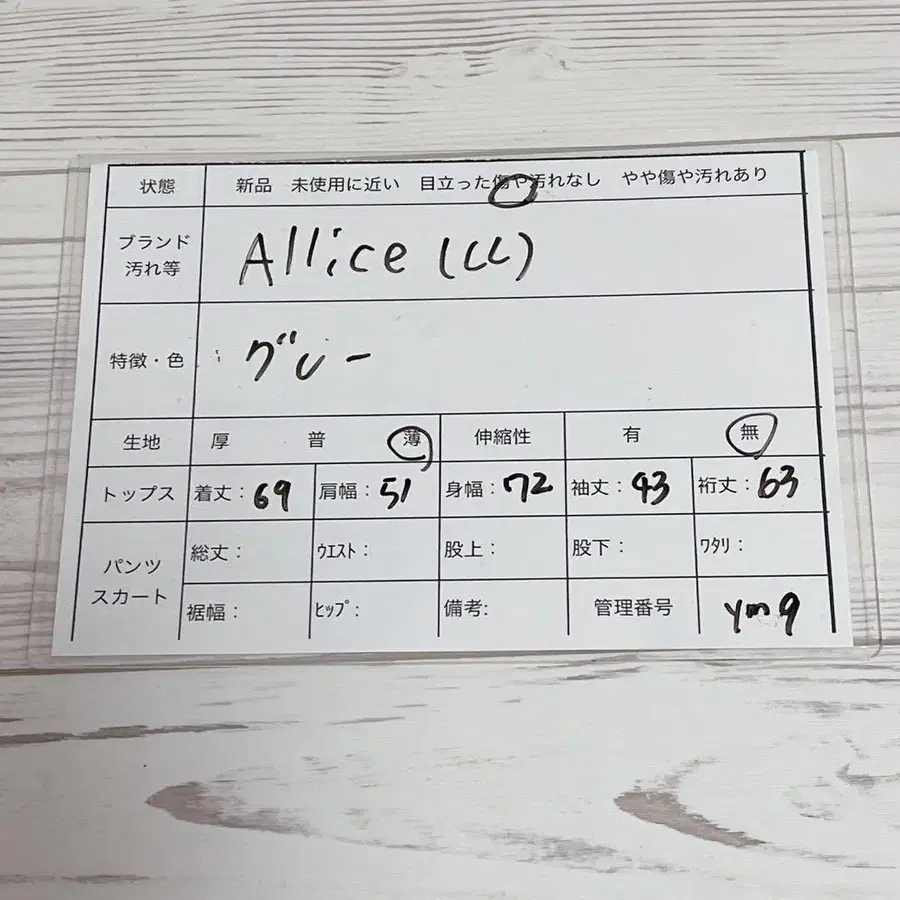 状態 新品 未使用に近い 目立った傷や汚れなし やや傷や汚れあり
ブランド
汚れ等
Allice (LL)
特徴・色 グレー
生地 厚 普 薄 伸縮性 有 無
トップス 着丈：69 肩幅：51 身幅：72 袖丈：43 裄丈：63
パンツ
スカート
総丈： ｳｴｽﾄ： 股上： 股下： ﾜﾀﾘ：
裾幅： ﾋｯﾌﾟ： 備考: 管理番号 ym9